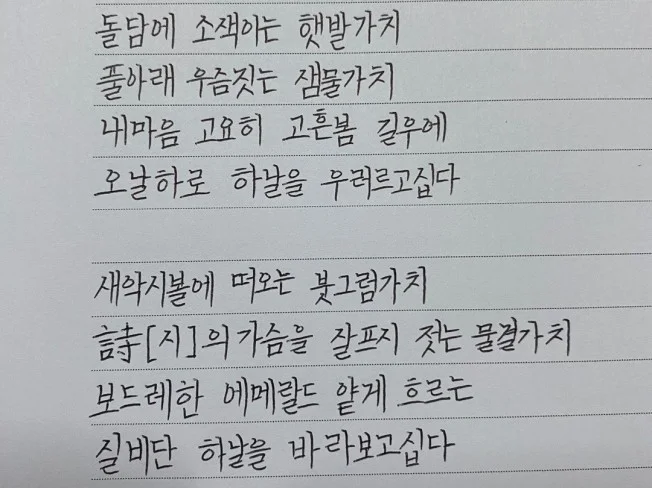 돌담에 소색이는 햇발가치
풀아래 우즘짓는 샘물가치
내마음 고요히 고흔봄 길우에
오날하로 하날을 우러르고십다
새악시볼에 떠오는 붓그럼가치
詩[시]의가슴을 잘프시 젓는 물결가치
보드레한 에메랄드 얕게 흐르는
실비단 하날을 바라보고십다